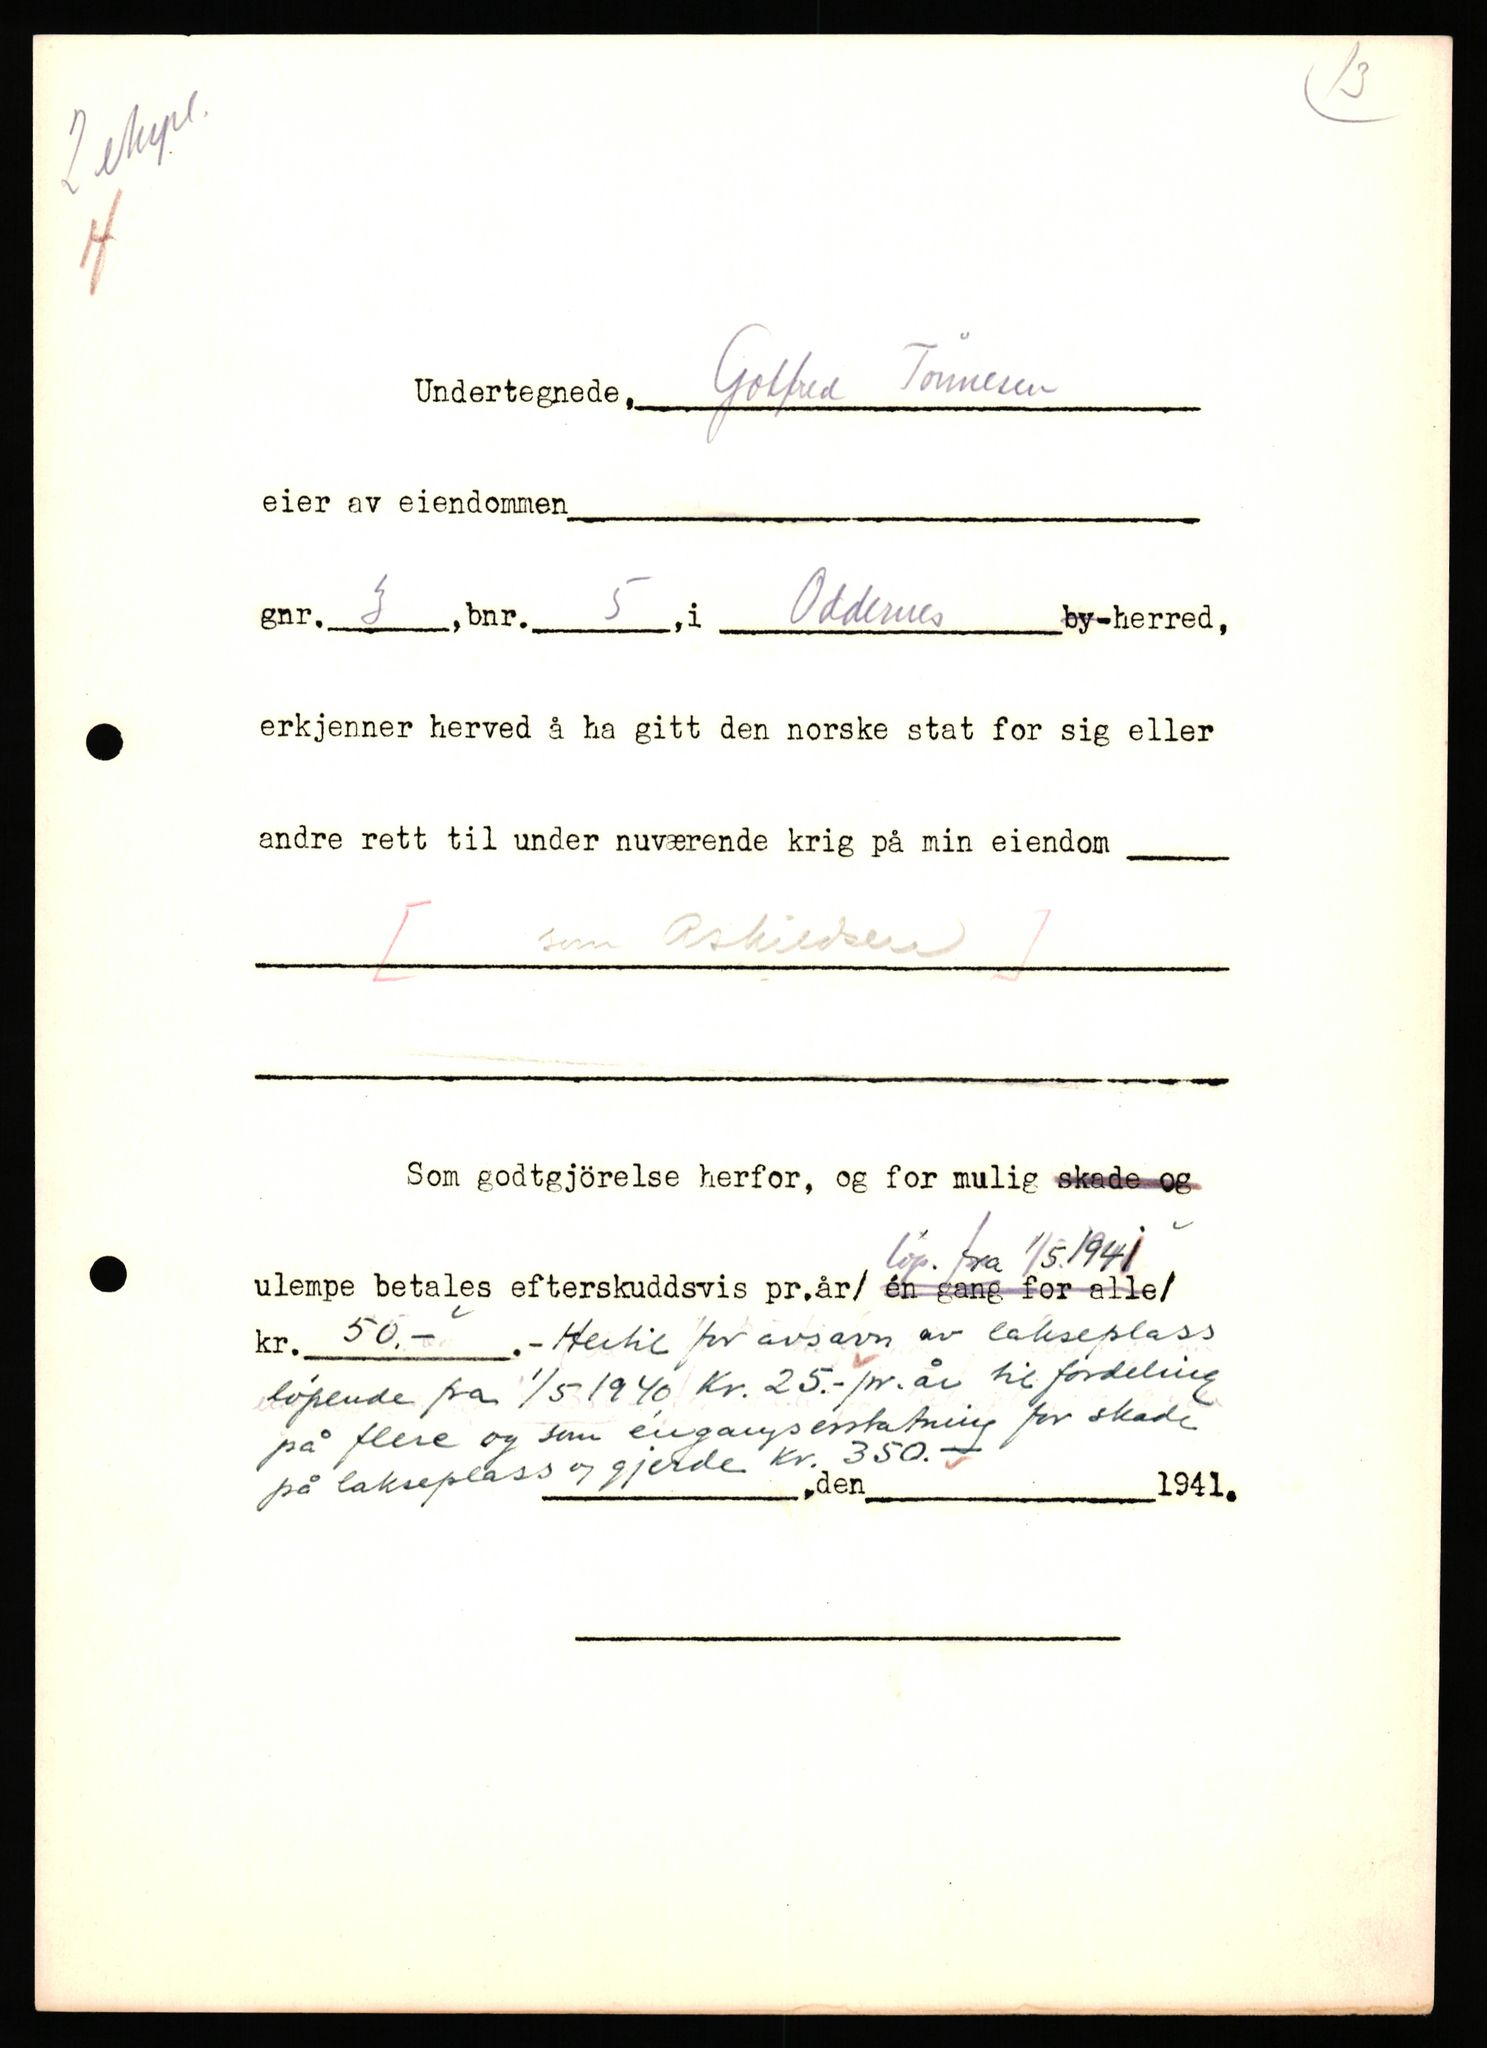 13
2 ekspl.
4
Undertegnede, Gotfred Tönnesen
eier av eiendommen
gnr. 3, bnr. 5, i Oddernes by-herred,
erkjenner herved å ha gitt den norske stat for sig eller
andre rett til under nuværende krig på min eiendom
[ som Askildsen ]
Som godtgjörelse herfor, og for mulig skade og
löp. fra 1/5.1941
ulempe betales efterskuddsvis pr.år/ én gang for alle/
kr. 50.- .- Hertil for avsavn av lakseplass
löpende fra 1/5 1940 Kr. 25.- pr. år til fordeling
på flere og som éngangserstatning for skade
på lakseplass og gjerde Kr. 350.-
,den 1941.